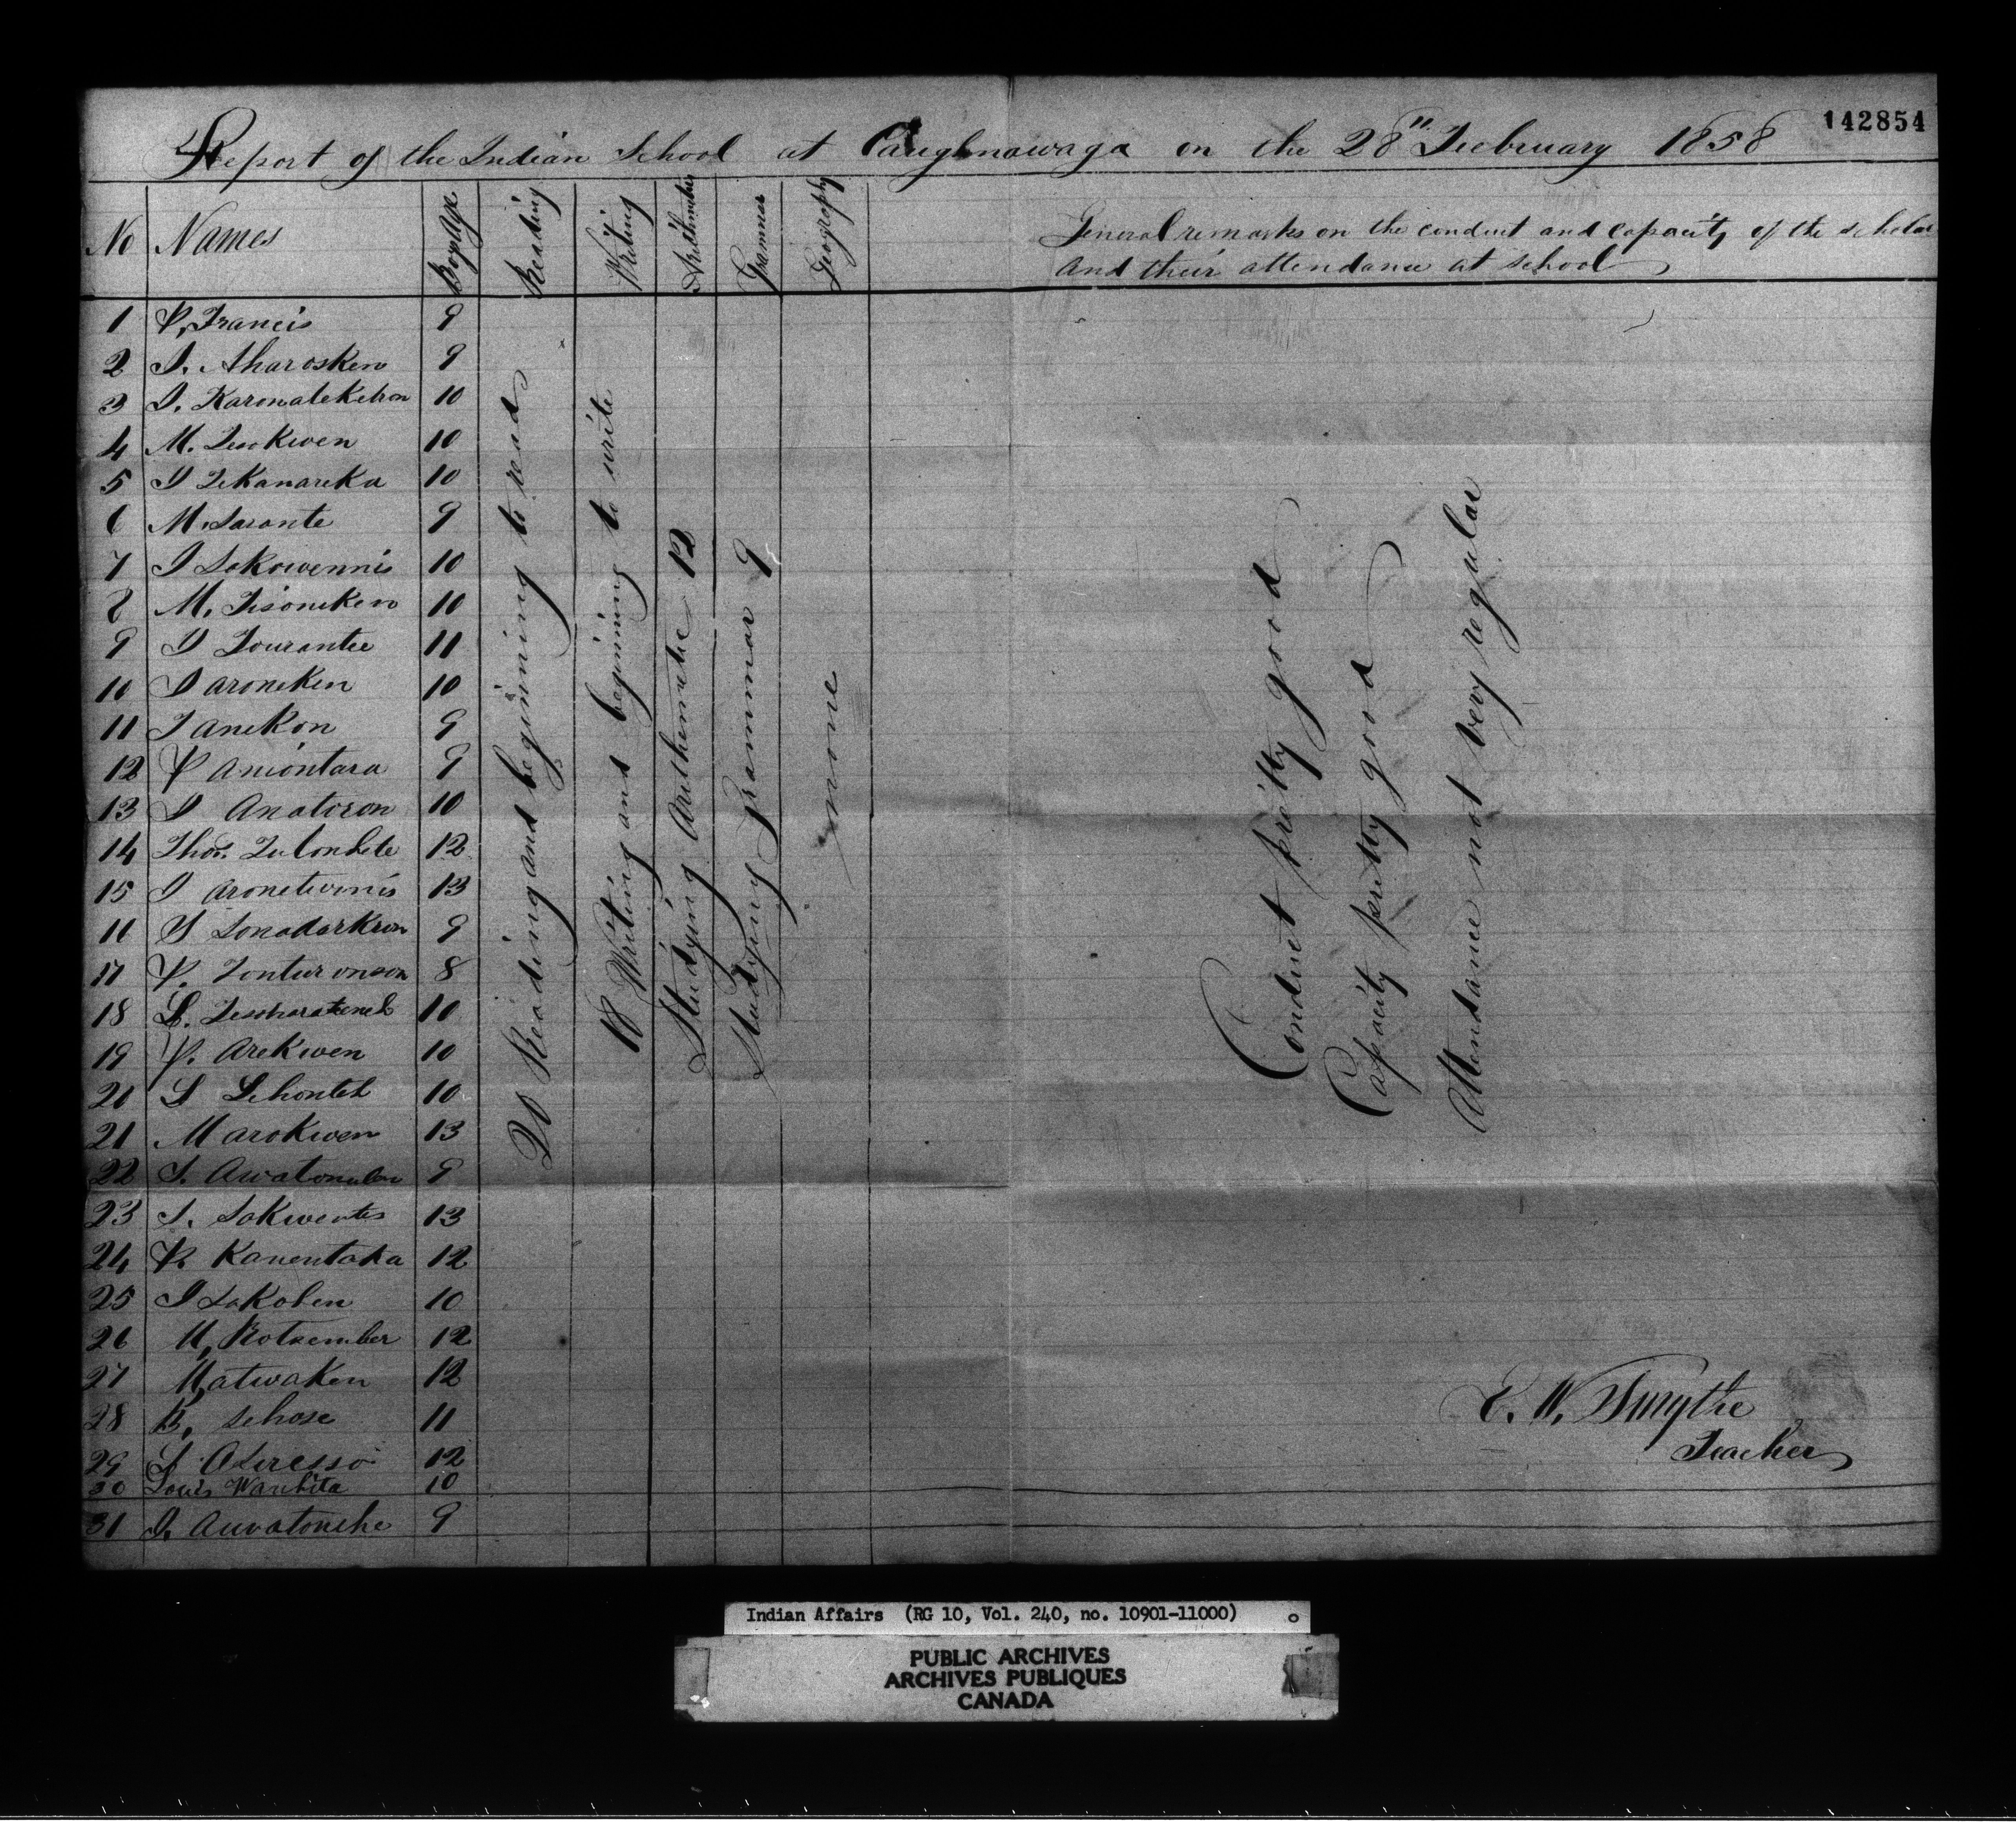 142854
Report of the Indian School at Caughnawaga on the 28" Feebruary 1858
No Names Boys Age Reading Writing Arithmetic Grammar Geography
General remarks on the conduct and capacity of the scholar
and their attendance at school
1 P, Francis 9
2 S. Aharosken 9
3 I. Karonatekehon 10
4 M. 10
5 I Tekanareka 10
6 M. Saronte 9
7 I Sakowennis 10
8 M. Tisoneken 10
9 I Tourantee 11
10 I aroneken 10
11 I anekon 9
12 P aniontara 9
13 I Anatoron 10
14 Thos. 12
15 I aronetwnis 13
16 S Sonadarkwon 9
17 P. Tonturonson 8
18 L. 10
19 P. Arekwen 10
20 S Sehonteh 10
21 M arokwen 13
22 S. 9
23 S. Sakwentes 13
24 P. Kanentaka 12
25 I Sakohen 10
26 M, Rotsember 12
27 M, atwaken 12
28 B, sehose 11
29 S 12
30 Louis Wanhita 10
31 I. Auvatonche 9
20 Reading and beginning to read
18 Writing and beginning to write
Studying Arethemetic 12
Studying Grammar 9
none
Conduct pretty good
Capacity pretty good
Attendance not very regular
E. W. Smythe
Teacher
Indian Affairs (RG 10, Vol. 240, no. 10901-11000)
PUBLIC ARCHIVES
ARCHIVES PUBLIQUES
CANADA